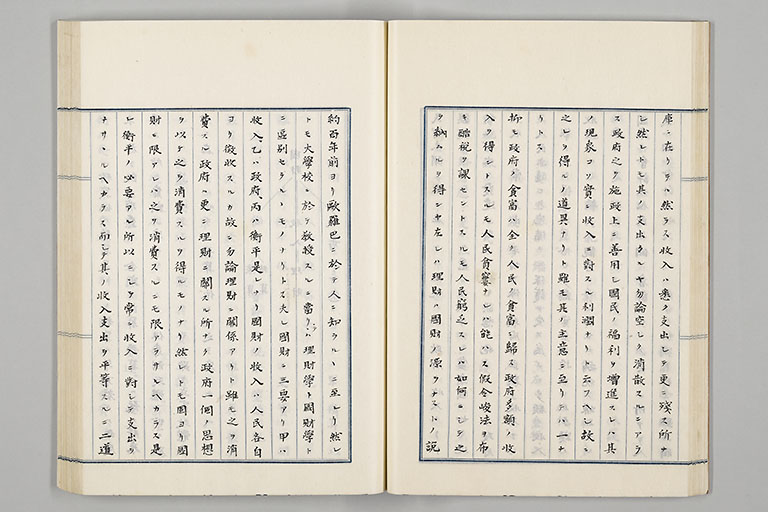 庫ニ在リテハ然ラス收入ハ悉ク支出シテ更ニ殘ス所ナ
シ然レトモ其ノ支出タルヤ勿論空シク消散スルニアラ
ス政府之ヲ施政上ニ善用シ國民ノ福利ヲ增進スレハ其
ノ現象コソ實ニ收入ニ對スル利潤ナリト云フヘシ故ニ
之レヲ得ルノ道異ナリト雖モ其ノ主意ニ至リテハ一ナ
リトス
抑モ政府ノ貪富ハ全ク人民ノ貪富ニ歸ス政府多額ノ收
入ヲ得ントスルモ人民貪窶ナレハ能ハス假令峻法ヲ布
キ酷稅ヲ課セントスルモ人民窮乏スレハ如何ニシテ之
ヲ納ムルヲ得ンヤ左レハ理財ハ國財ノ源ヲナストノ說
約百年前ヨリ歐羅巴ニ於テ人ニ知ラルヽニ至レリ然レ
トモ大學校ニ於テ敎授スルニ當リテハ理財學ト國財學ト
ニ區別セラルヽモノナリトス夫レ國財ニ三要アリ甲ハ
收入、乙ハ政府、丙ハ衡平是レナリ國財ノ收入ハ人民各自
ヨリ徵收スルカ故ニ勿論理財ニ關係アリト雖モ之ヲ消
費スル政府ハ更ニ理財ニ關スル所ナク政府一個ノ思想
ヲ以テ之ヲ消費スルヲ得ルモノナリ然レトモ固ヨリ國
財ニ限アレハ之ヲ消費スルニモ限アラサルヘカラス是
レ衡平ノ必要アル所以ニシテ常ニ收入ニ對シテ支出ヲ
ナサヽルヘカラス而シテ其ノ收入支出ヲ平等スルニ二道